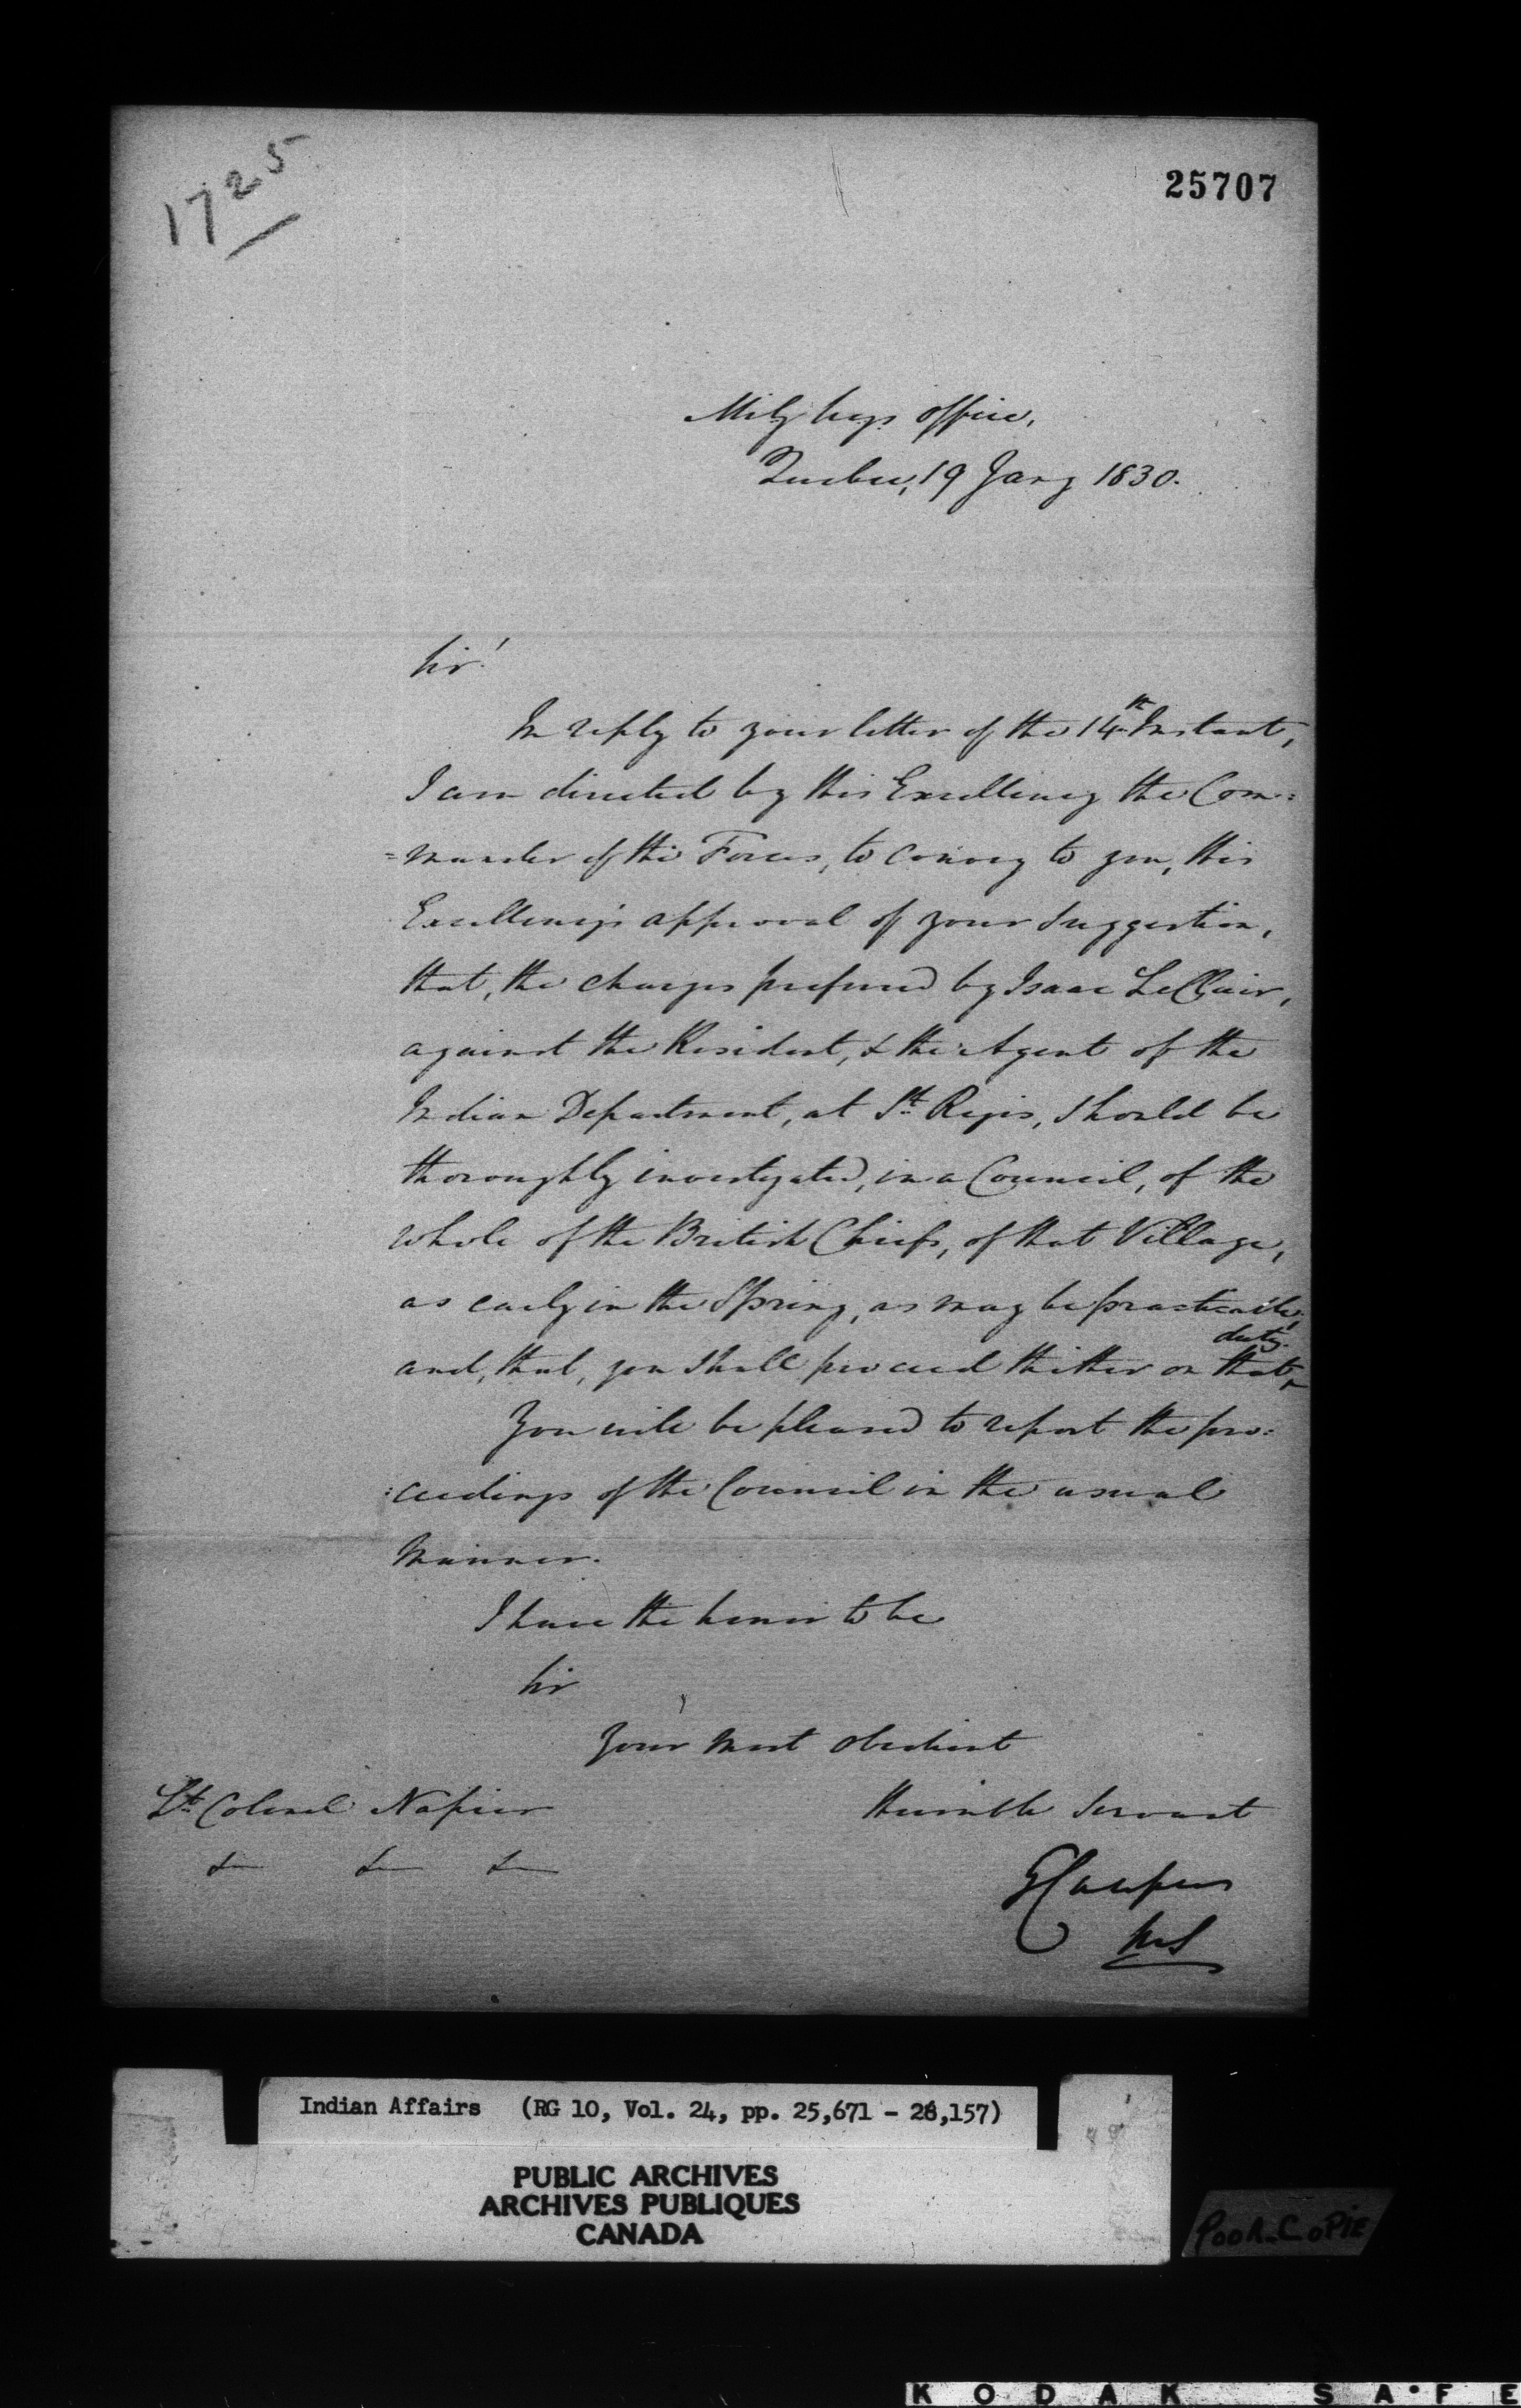 1725
25707
Mily Secys office,
Quebec, 19 Jany 1830.
Sir!
In reply to your letter of the 14th Instant,
I am directed by His Excellency the Com=
=mander of the Forces, to convey to you, His
Excellency's approval of your Suggestion,
that, the charges preferred by Isaac LeClair,
against the Resident, & the Agent of the
Indian Department, at St. Regis, Should be
thoroughly investigated, in a Council, of the
whole of the British Chiefs, of that Village,
as early in the Spring, as may be practicable;
and, that, you Shall proceed thither on that duty.
You will be pleased to report the pro=
=ceedings of the Council in the usual
Manner.
I have the honor to be
Sir
Your Most Obedient
Humble Servant
Lt. Colonel Napier
& & &
MS
Indian Affairs (RG 10, Vol. 24, pp. 25,671 - 26,157)
PUBLIC ARCHIVES
ARCHIVES PUBLIQUES
CANADA
POOR COPIE
KODAK SAFE